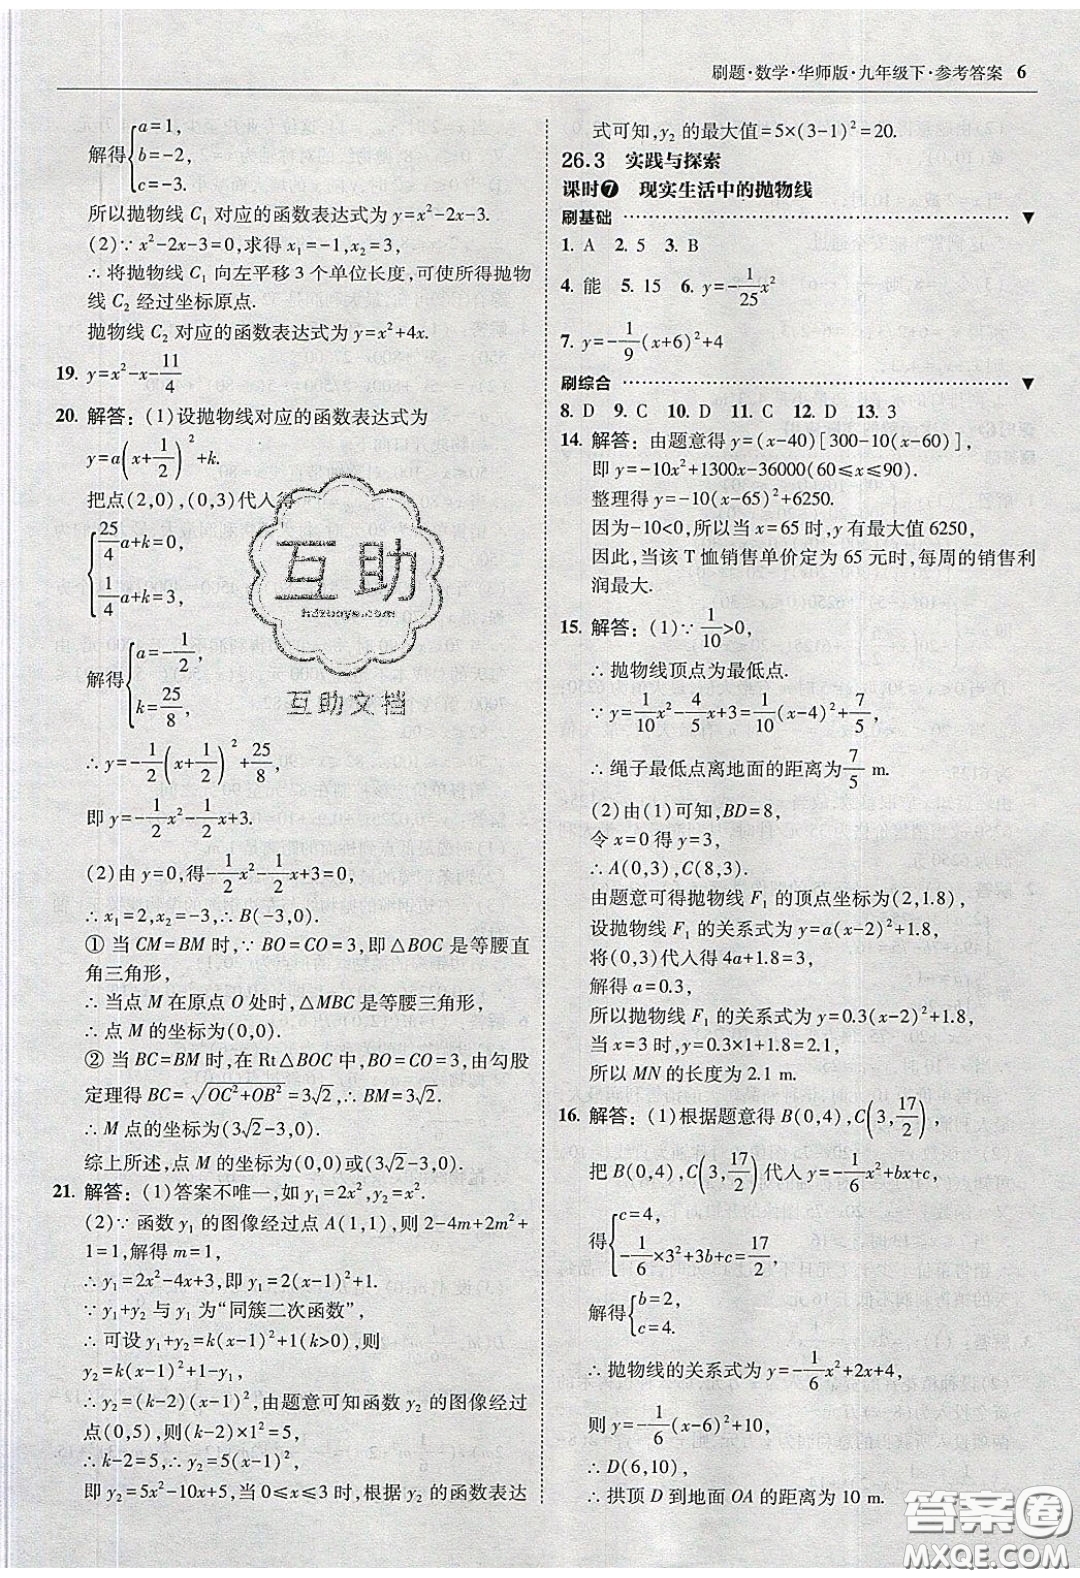 刷题·数学·华师版·九年级下·参考答案 6
解得{a=1,
b=-2,
c=-3.
所以抛物线 C₁ 对应的函数表达式为 y=x²-2x-3.
(2)∵ x²-2x-3=0,求得 x₁=-1,x₂=3,
∴ 将抛物线 C₁ 向左平移 3 个单位长度,可使所得抛物
线 C₂ 经过坐标原点.
抛物线 C₂ 对应的函数表达式为 y=x²+4x.
19. y=x²-x-11/4
20. 解答：(1)设抛物线对应的函数表达式为
y=a(x+1/2)²+k.
把点(2,0),(0,3)代入得
{25/4a+k=0,
1/4a+k=3,
解得{a=-1/2,
k=25/8,
∴ y=-1/2(x+1/2)²+25/8,
即 y=-1/2x²-1/2x+3.
(2)由 y=0,得-1/2x²-1/2x+3=0,
∴ x₁=2,x₂=-3,∴B(-3,0).
① 当 CM=BM 时,∵BO=CO=3,即△BOC 是等腰直
角三角形,
∴ 当点 M 在原点 O 处时,△MBC 是等腰三角形,
∴ 点 M 的坐标为(0,0).
② 当 BC=BM 时,在 Rt△BOC 中,BO=CO=3,由勾股
定理得 BC=√(OC²+OB²)=3√2,∴ BM=3√2.
∴ M 点的坐标为(3√2-3,0).
综上所述,点 M 的坐标为(0,0)或(3√2-3,0).
21. 解答：(1)答案不唯一,如 y₁=2x²,y₂=x².
(2)∵ 函数 y₁ 的图像经过点 A(1,1),则 2-4m+2m²+
1=1,解得 m=1,
∴ y₁=2x²-4x+3,即 y₁=2(x-1)²+1,
∵ y₁+y₂ 与 y₁ 为“同簇二次函数”,
∴ 可设 y₁+y₂=k(x-1)²+1(k>0),则
y₂=k(x-1)²+1-y₁,
∴ y₂=(k-2)(x-1)²,由题意可知函数 y₂ 的图像经过
点(0,5),则(k-2)×1²=5,
∴ k-2=5,∴ y₂=5(x-1)²,
即 y₂=5x²-10x+5,当 0≤x≤3 时,根据 y₂ 的函数表达
式可知,y₂ 的最大值=5×(3-1)²=20.
26.3 实践与探索
课时❼ 现实生活中的抛物线
刷基础 ▼
1. A 2. 5 3. B
4. 能 5. 15 6. y=-1/25x²
7. y=-1/9(x+6)²+4
刷综合 ▼
8. D 9. C 10. D 11. C 12. D 13. 3
14. 解答：由题意得 y=(x-40)[300-10(x-60)],
即 y=-10x²+1300x-36000(60≤x≤90).
整理得 y=-10(x-65)²+6250.
因为-10<0,所以当 x=65 时,y 有最大值 6250,
因此,当该 T 恤销售单价定为 65 元时,每周的销售利
润最大.
15. 解答：(1)∵1/10>0,
∴ 抛物线顶点为最低点.
∵ y=1/10x²-4/5x+3=1/10(x-4)²+7/5,
∴ 绳子最低点离地面的距离为7/5 m.
(2)由(1)可知,BD=8,
令 x=0 得 y=3,
∴A(0,3),C(8,3).
由题意可得抛物线 F₁ 的顶点坐标为(2,1.8),
设抛物线 F₁ 的关系式为 y=a(x-2)²+1.8,
将(0,3)代入得 4a+1.8=3,
解得 a=0.3,
所以抛物线 F₁ 的关系式为 y=0.3(x-2)²+1.8,
当 x=3 时,y=0.3+1.8=2.1,
所以 MN 的长度为 2.1 m.
16. 解答：(1)根据题意得 B(0,4),C(3,17/2),
把 B(0,4),C(3,17/2)代入 y=-1/6x²+bx+c,
得{c=4,
-1/6×3²+3b+c=17/2,
解得{b=2,
c=4.
∴ 抛物线的关系式为 y=-1/6x²+2x+4,
则 y=-1/6(x-6)²+10,
∴D(6,10),
∴ 拱顶 D 到地面 OA 的距离为 10 m.
互助
hdzuoye.com
互助文档
答案圈
MXQE.COM